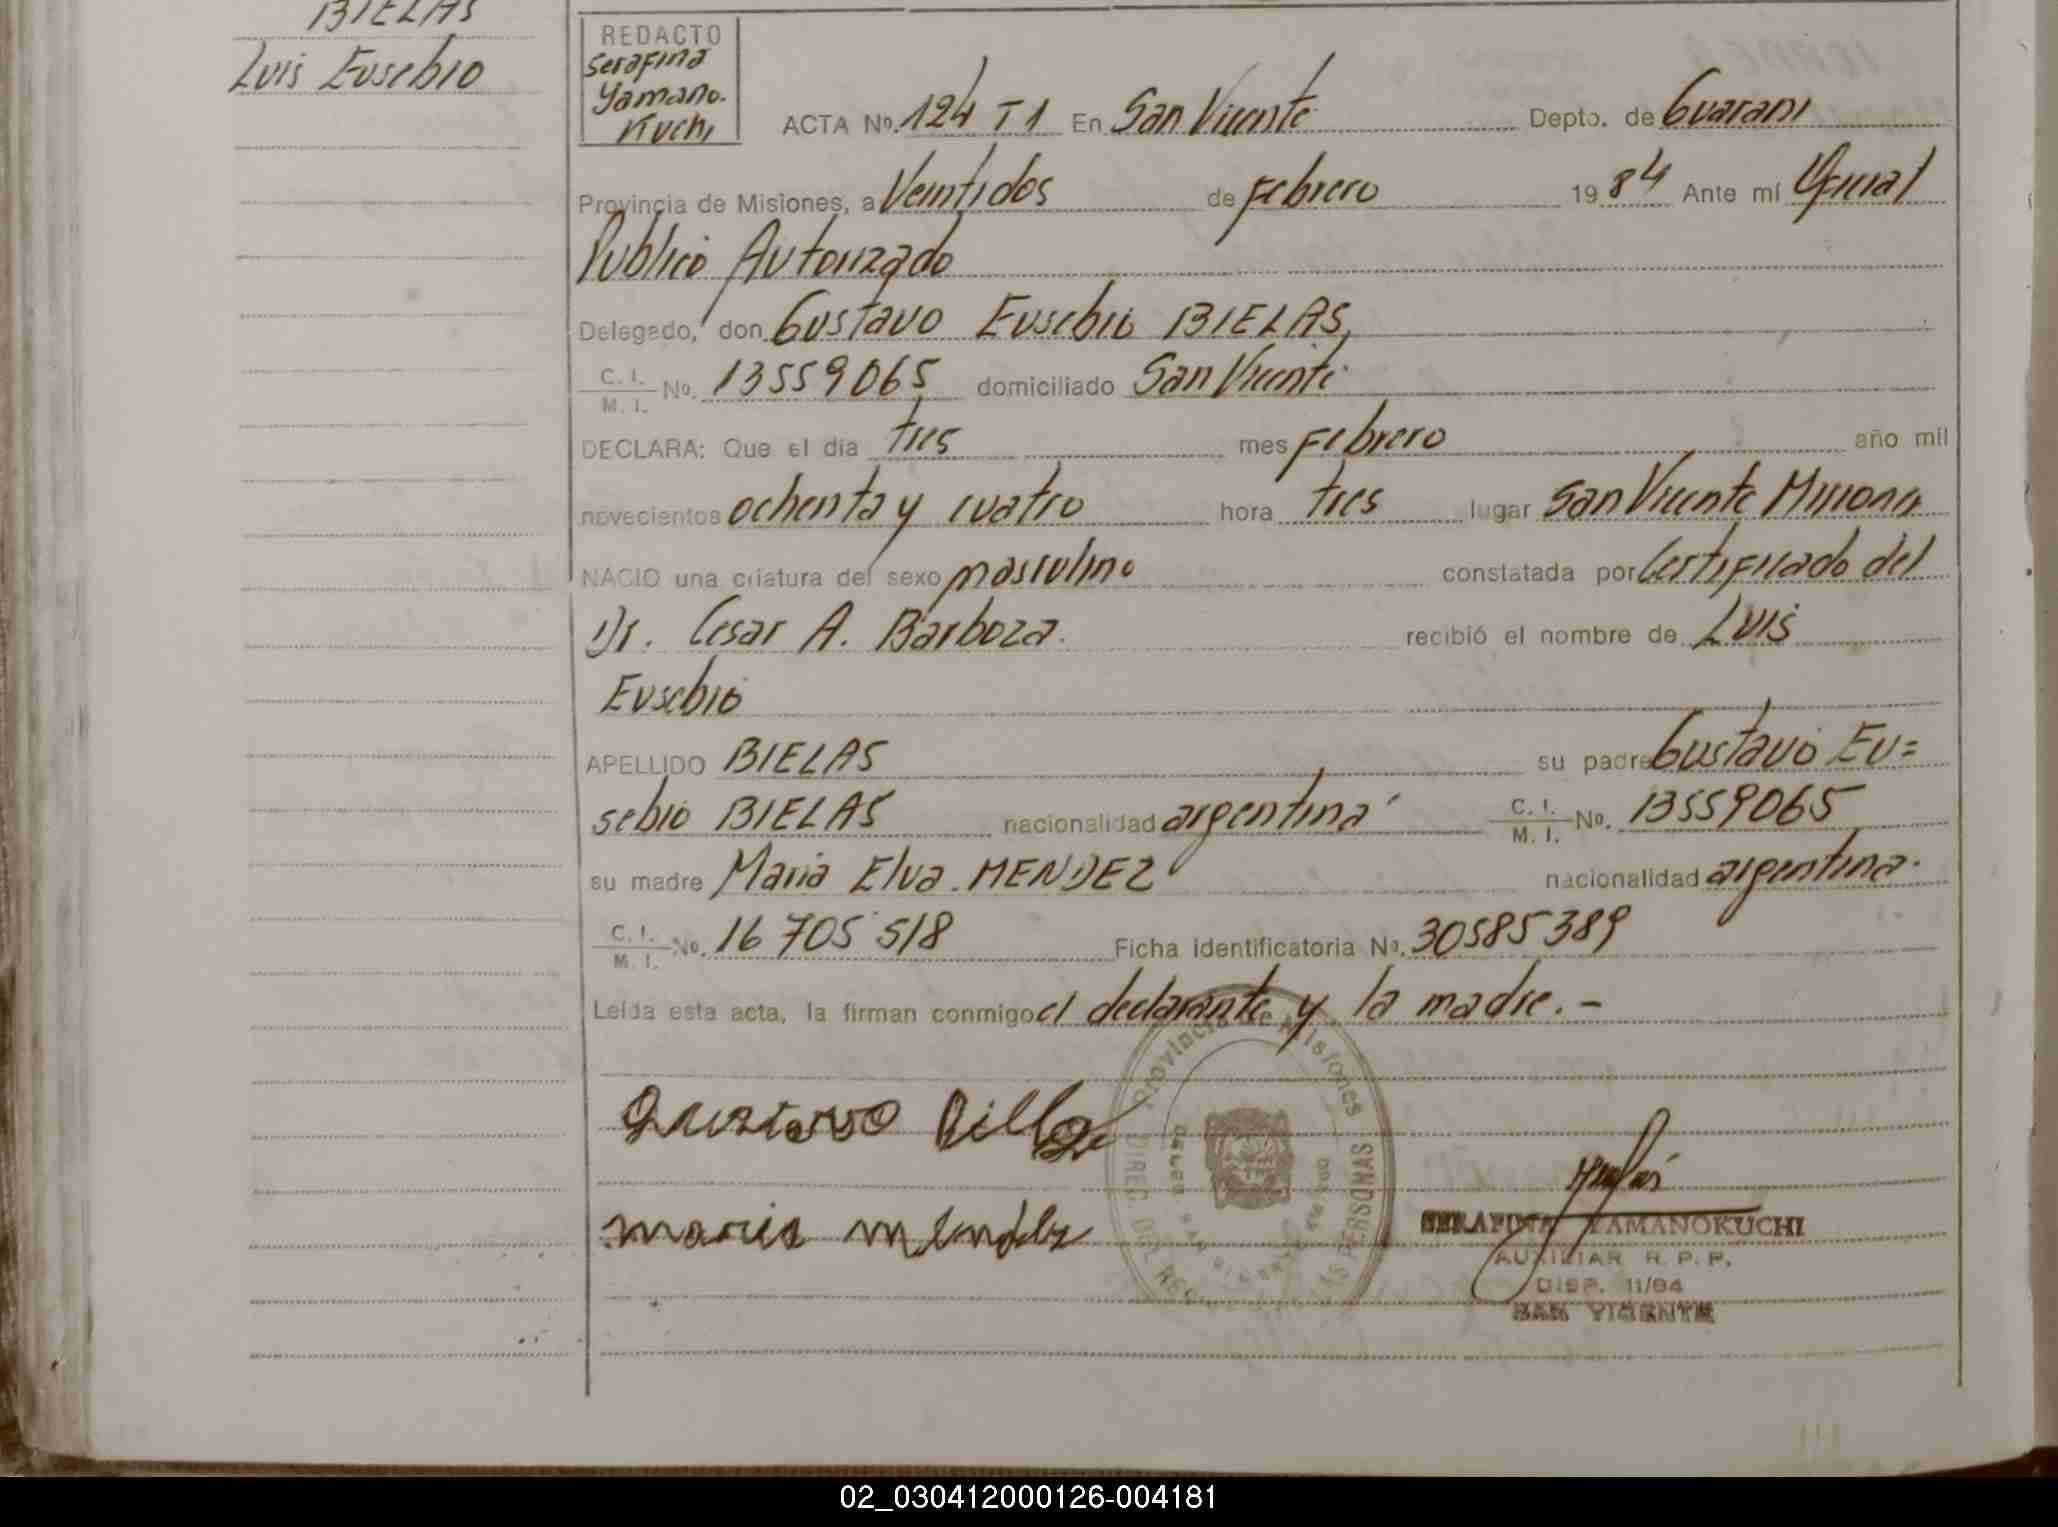 BIELAS
Luis Eusebio
REDACTO
Serafina
Yamano.
Kuchi
ACTA No. 124 T1 En San Vicente Depto. de Guarani
Provincia de Misiones, a Veintidos de Febrero 1984 Ante mí Oficial
Publico Autorizado
Delegado, don Gustavo Eusebio BIELAS,
C. I. / M. I. No. 13559065 domiciliado San Vicente
DECLARA: Que el día tres mes Febrero año mil
novecientos ochenta y cuatro hora tres lugar San Vicente Misiones
NACIO una criatura del sexo masculino constatada por Certificado del
Dr. Cesar A. Barboza. recibió el nombre de Luis
Eusebio
APELLIDO BIELAS su padre Gustavo Eu=
sebio BIELAS nacionalidad argentina C. I. / M. I. No. 13559065
su madre Maria Elva MENDEZ nacionalidad argentina.
C. I. / M. I. No. 16 705 518 Ficha identificatoria No. 30585389
Leída esta acta, la firman conmigo el declarante y la madre. -
Provincia de Misiones
DIREC. DEL REG. LAS PERSONAS
Gustavo
maria mendez
SERAFINA YAMANOKUCHI
AUXILIAR R. P. P.
DISP. 11/84
SAN VICENTE
02_030412000126-004181